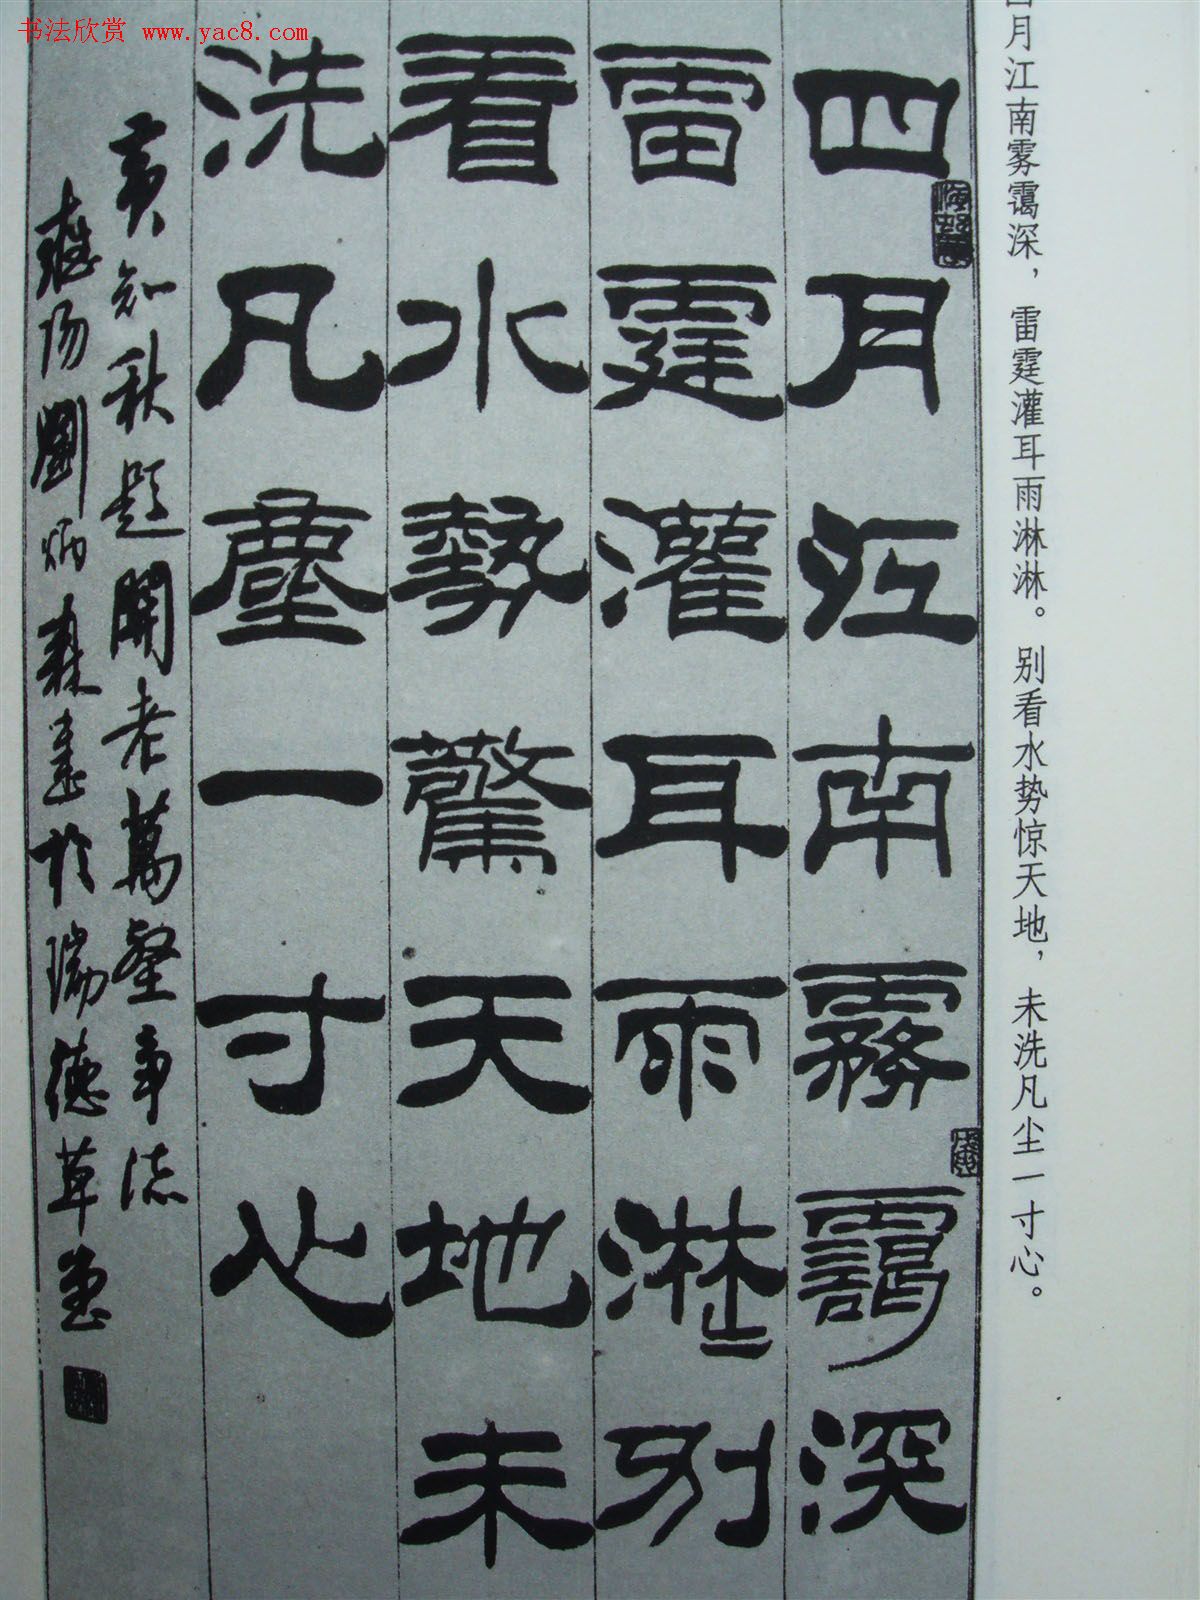 书法欣赏 www.yac8.com
四月江南雾霭深，雷霆灌耳雨淋淋。别看水势惊天地，未洗凡尘一寸心。
四月江南霧靄深
雷霆灌耳雨淋別
看水勢驚天地未
洗凡塵一寸心
黄知秋題開老萬壑爭流
劉炳森書於瑞德草堂